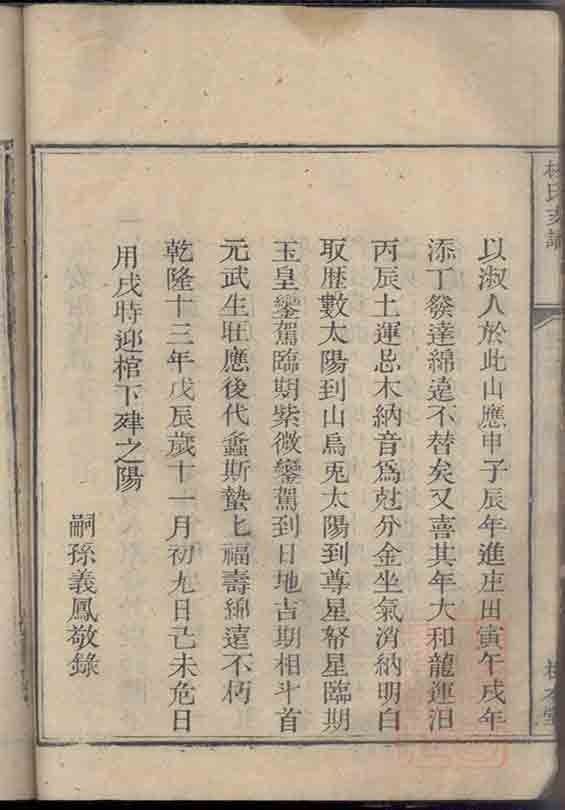 以淑人於此山應申子辰年進庄田寅午戌年
添丁發達綿遠不替矣又喜其年大和龍運汨
丙辰土運忌木納音為尅分金坐氣消納明白
取歴數太陽到山烏兎太陽到尊星帑星臨期
玉皇鑾駕臨期紫微鑾駕到日地吉期相斗首
元武生旺應後代螽斯蟄匕福壽綿遠不朽
乾隆十三年戊辰歲十一月初九日己未危日
用戌時迎棺下肂之陽
嗣孫義鳳敬錄